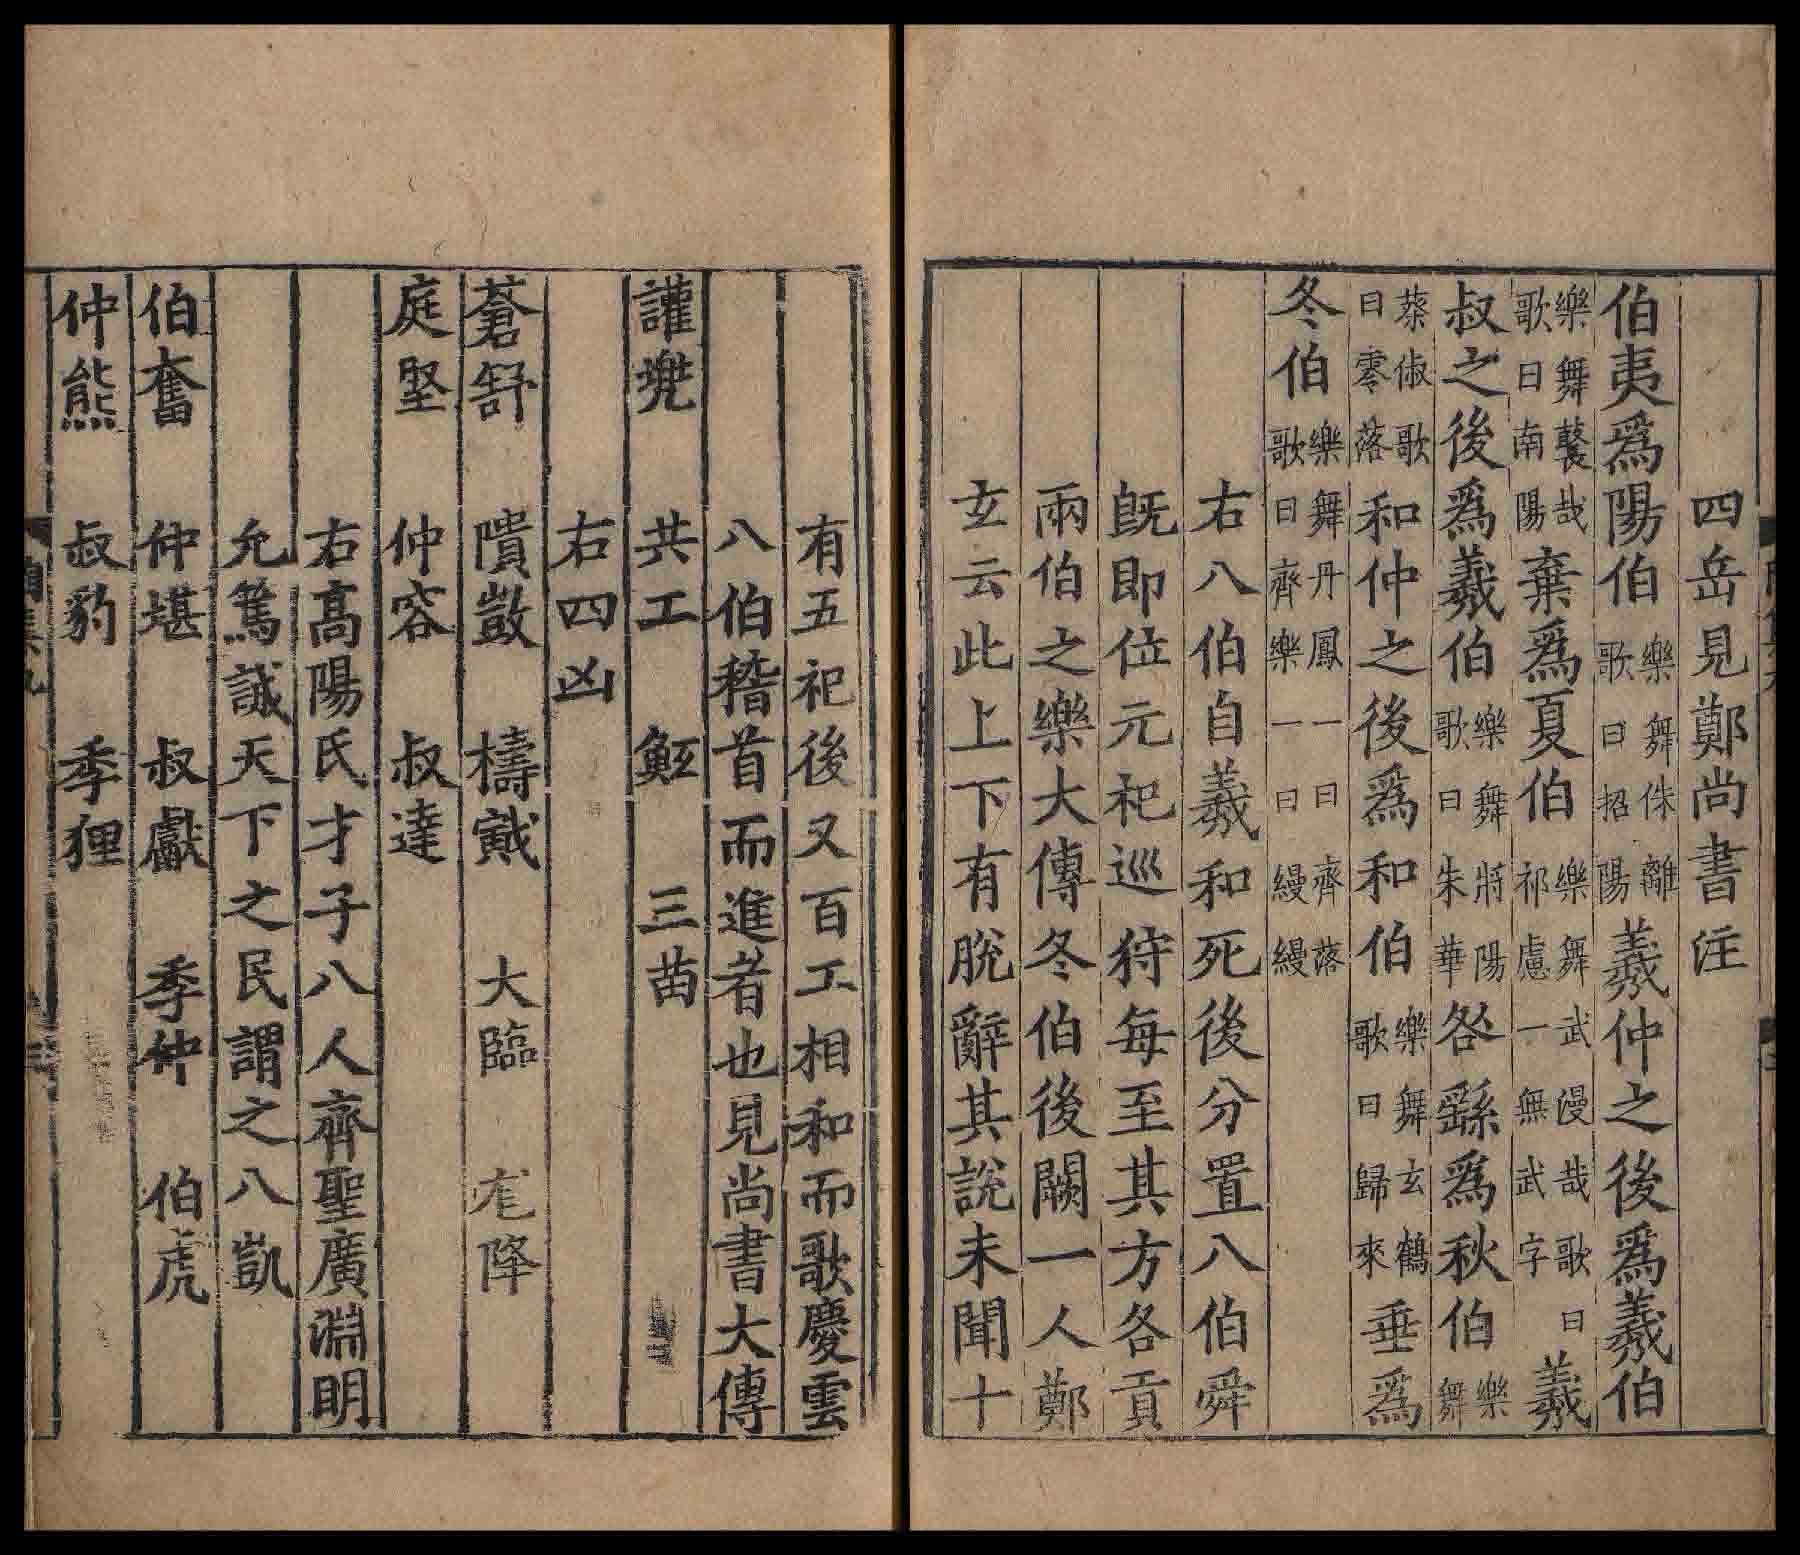 四岳見鄭尚書注
伯夷爲陽伯樂舞侏離歌曰招陽羲仲之後爲羲伯
樂舞鼚哉歌曰南陽棄爲夏伯樂舞武漫哉歌曰祁慮一無武字羲
叔之後爲羲伯樂舞將陽歌曰朱華咎繇爲秋伯樂舞
蔡俶歌曰零落和仲之後爲和伯樂舞玄鶴歌曰歸來垂爲
冬伯樂舞丹鳳一曰齊落歌曰齊樂一曰縵縵
右八伯自羲和死後分置八伯舜
旣即位元祀巡狩每至其方各貢
兩伯之樂大傳冬伯後闕一人鄭
玄云此上下有脫辭其說未聞十
有五祀後又百工相和而歌慶雲
八伯稽首而進者也見尚書大傳
讙兠 共工 鮌 三苗
右四凶
蒼舒 隤敳 檮戭 大臨 尨降
庭堅 仲容 叔達
右高陽氏才子八人齊聖廣淵明
允篤誠天下之民謂之八凱
伯奮 仲堪 叔獻 季仲 伯虎
仲熊 叔豹 季狸